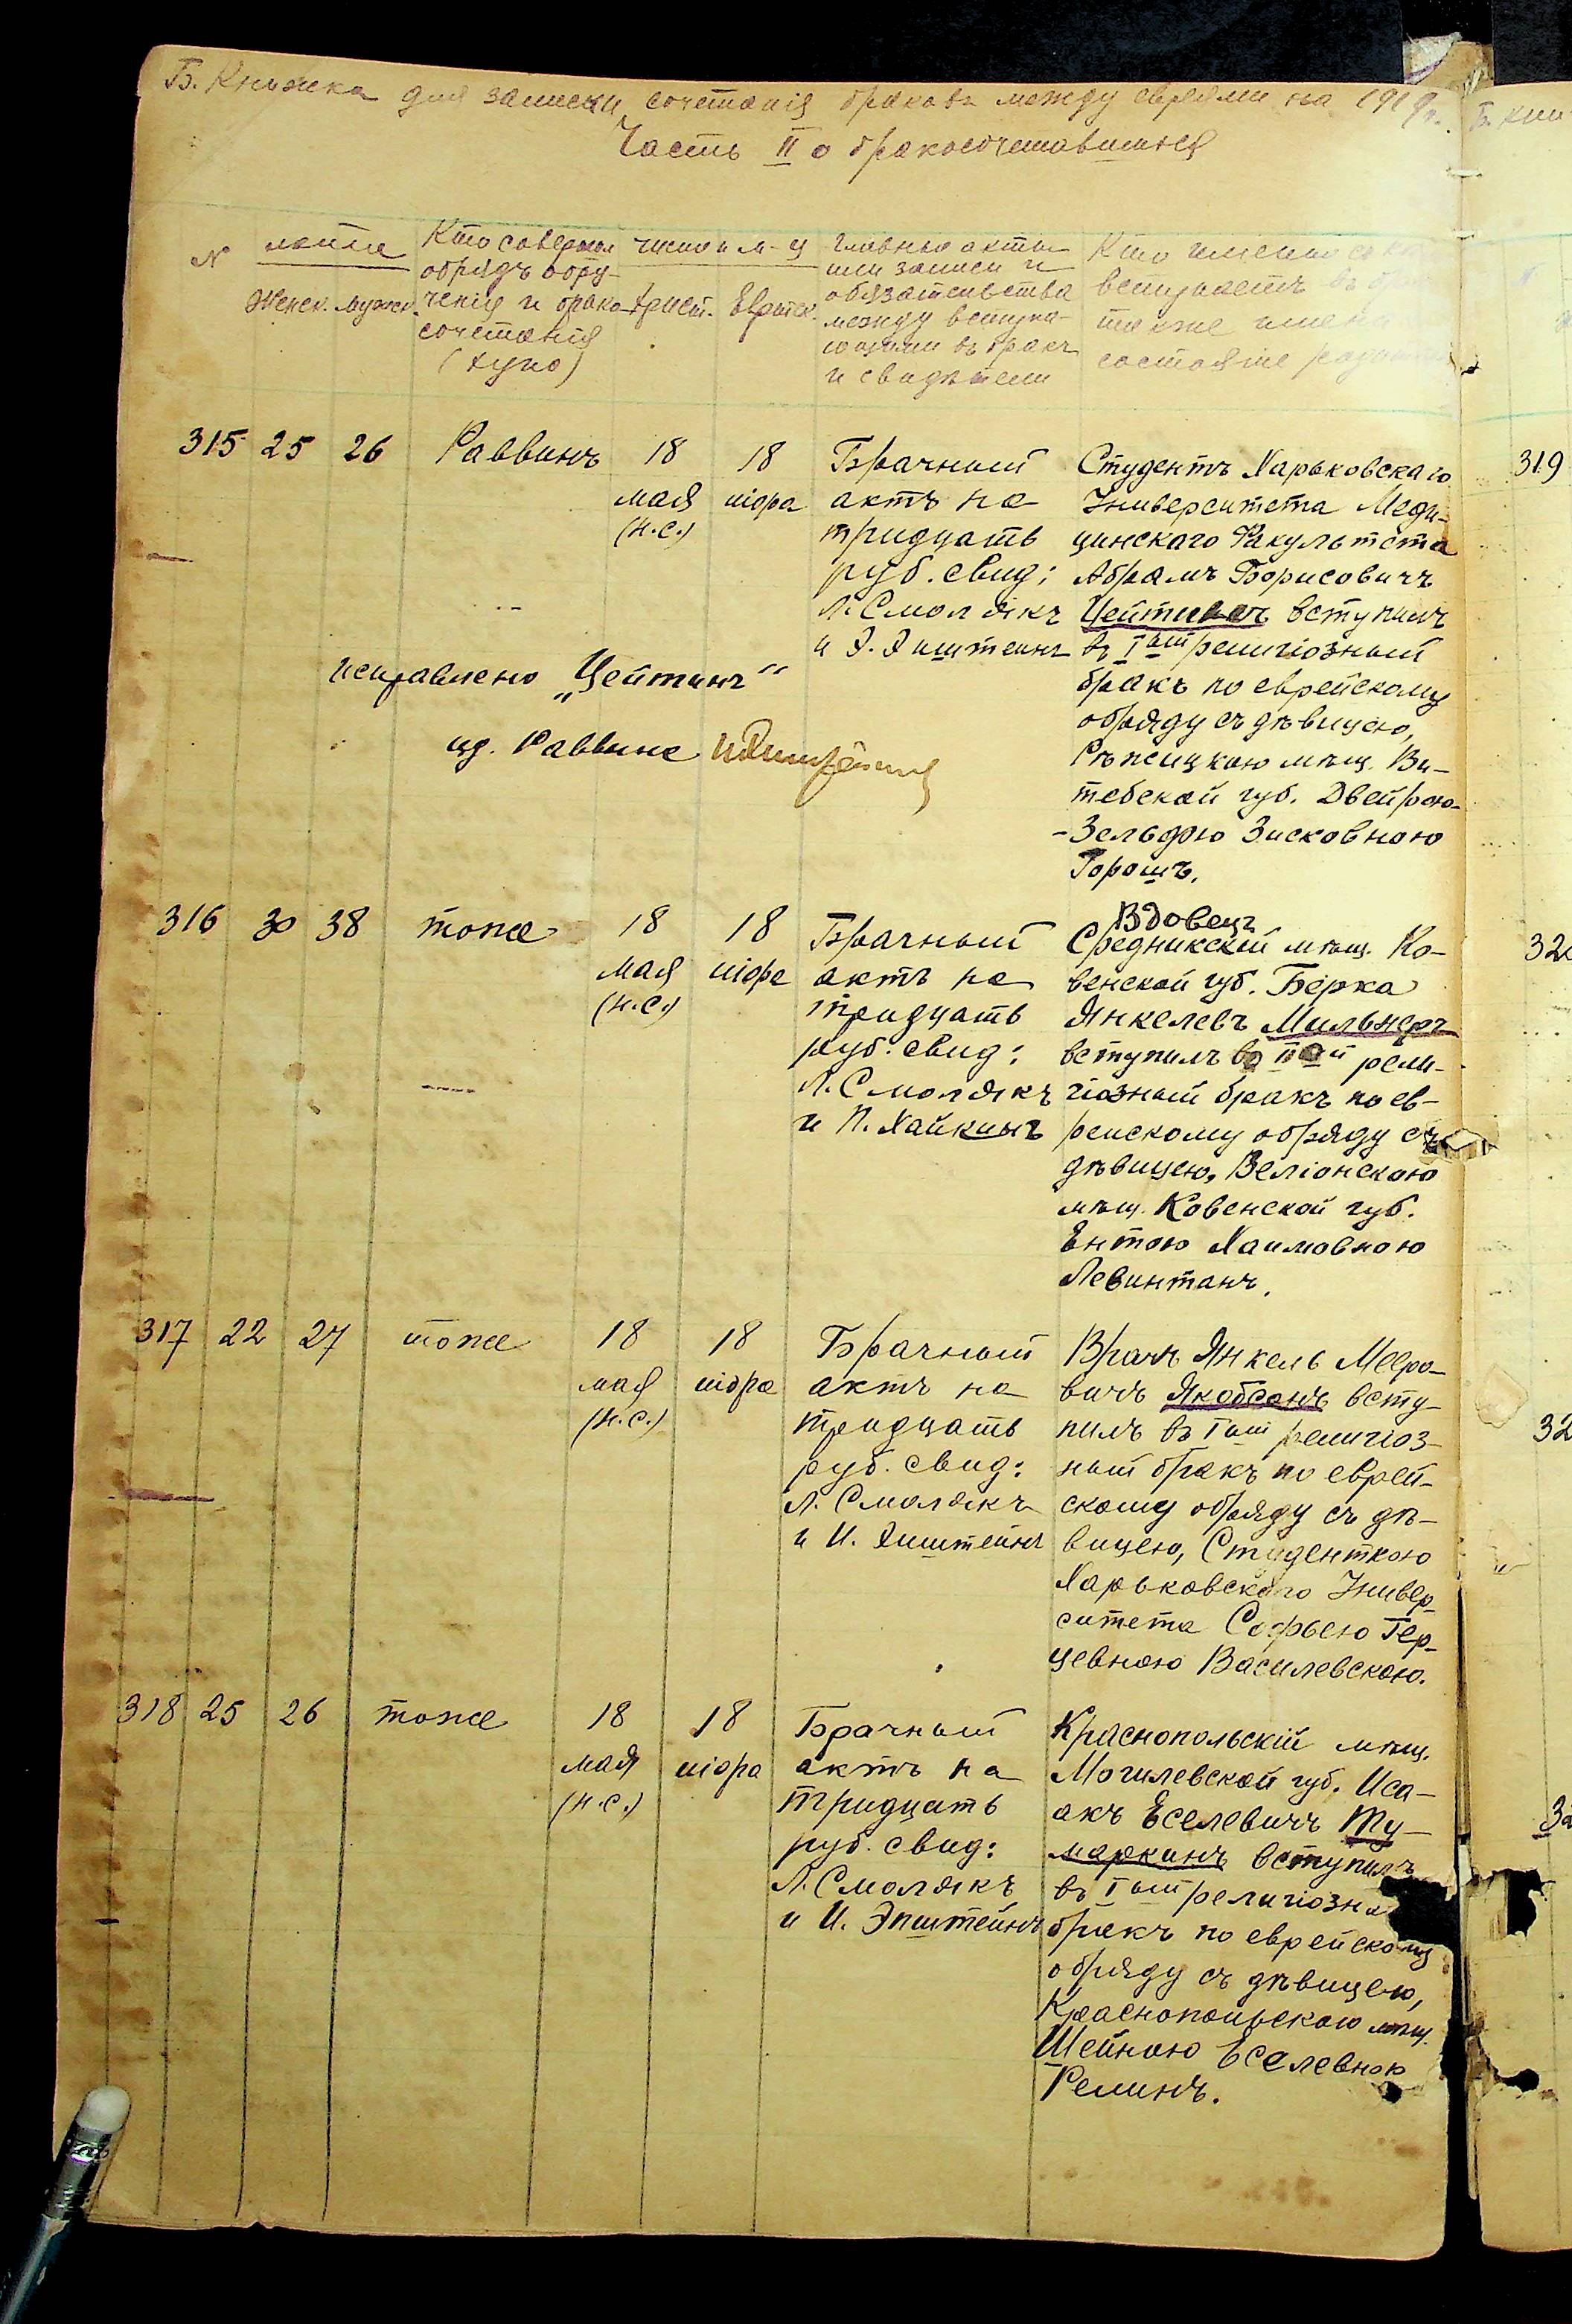 Б. Книжка для записки сочетанія браковъ между евреями на 1919 г.
Часть II о бракосочетавшихся
№
лѣта
Женск. Мужск.
Кто совершал
обрядъ обру-
ченія и брако-
сочетанія
(хупо)
число и м-ц
Христ. Еврейс.
главные акты
или записи и
обязательства
между вступа-
ющими въ бракъ
и свидѣтели
Кто именно съ кѣмъ
вступаетъ въ бракъ
также имена
состояніе родителей
315 25 26 Раввинъ
18
мая
(н.с.)
18
ніора
Брачный
актъ на
тридцать
руб. свид:
Л. Смолякъ
и Э. Эпштейнъ
Студентъ Харьковскаго
Университета Меди-
цинскаго Факультета
Абрамъ Борисовичъ
Цейтинъ вступилъ
въ Iый религіозный
бракъ по еврейскому
обряду съ дѣвицею,
мѣщ. Ви-
тебской губ. Двейрою-
-Зельдою Зисковною
Горошъ.
исправлено „Цейтинъ“
ид. Раввина
316 30 38 тоже
18
мая
(н.с.)
18
ніора
Брачный
актъ на
тридцать
руб. свид:
Л. Смолякъ
и П. Хайкинъ
Вдовецъ
Средникскій мѣщ. Ко-
венской губ. Берка
Янкелевъ Мильнеръ
вступилъ во IIой рели-
гіозный бракъ по ев-
рейскому обряду съ
дѣвицею, Веліонскою
мѣщ. Ковенской губ.
Ентою Хаимовною
Левинтанъ.
317 22 27 тоже
18
мая
(н.с.)
18
ніора
Брачный
актъ на
тридцать
руб. свид:
Л. Смолякъ
и И. Эпштейнъ
Врачъ Янкель Мееро-
вичъ Якобсонъ всту-
пилъ въ Iый религіоз-
ный бракъ по еврей-
скому обряду съ дѣ-
вицею, Студенткою
Харьковскаго Универ-
ситета Софьею Гер-
цевною Василевскою.
318 25 26 тоже
18
мая
(н.с.)
18
ніора
Брачный
актъ на
тридцать
руб. свид:
Л. Смолякъ
и И. Эпштейнъ
Краснопольскій мѣщ.
Могилевской губ. Иса-
акъ Еселевичъ Ту-
маркинъ вступилъ
въ Iый религіозны
бракъ по еврейскому
обряду съ дѣвицею,
Краснопольскою мѣщ.
Шейною Еселевною
Реминъ.
Б. Кни
319
32
32
32